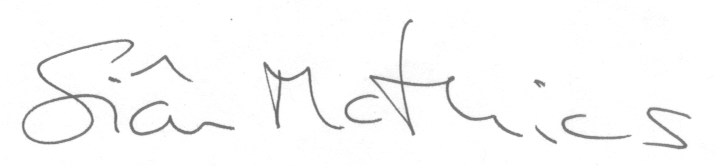 Siân Mathias